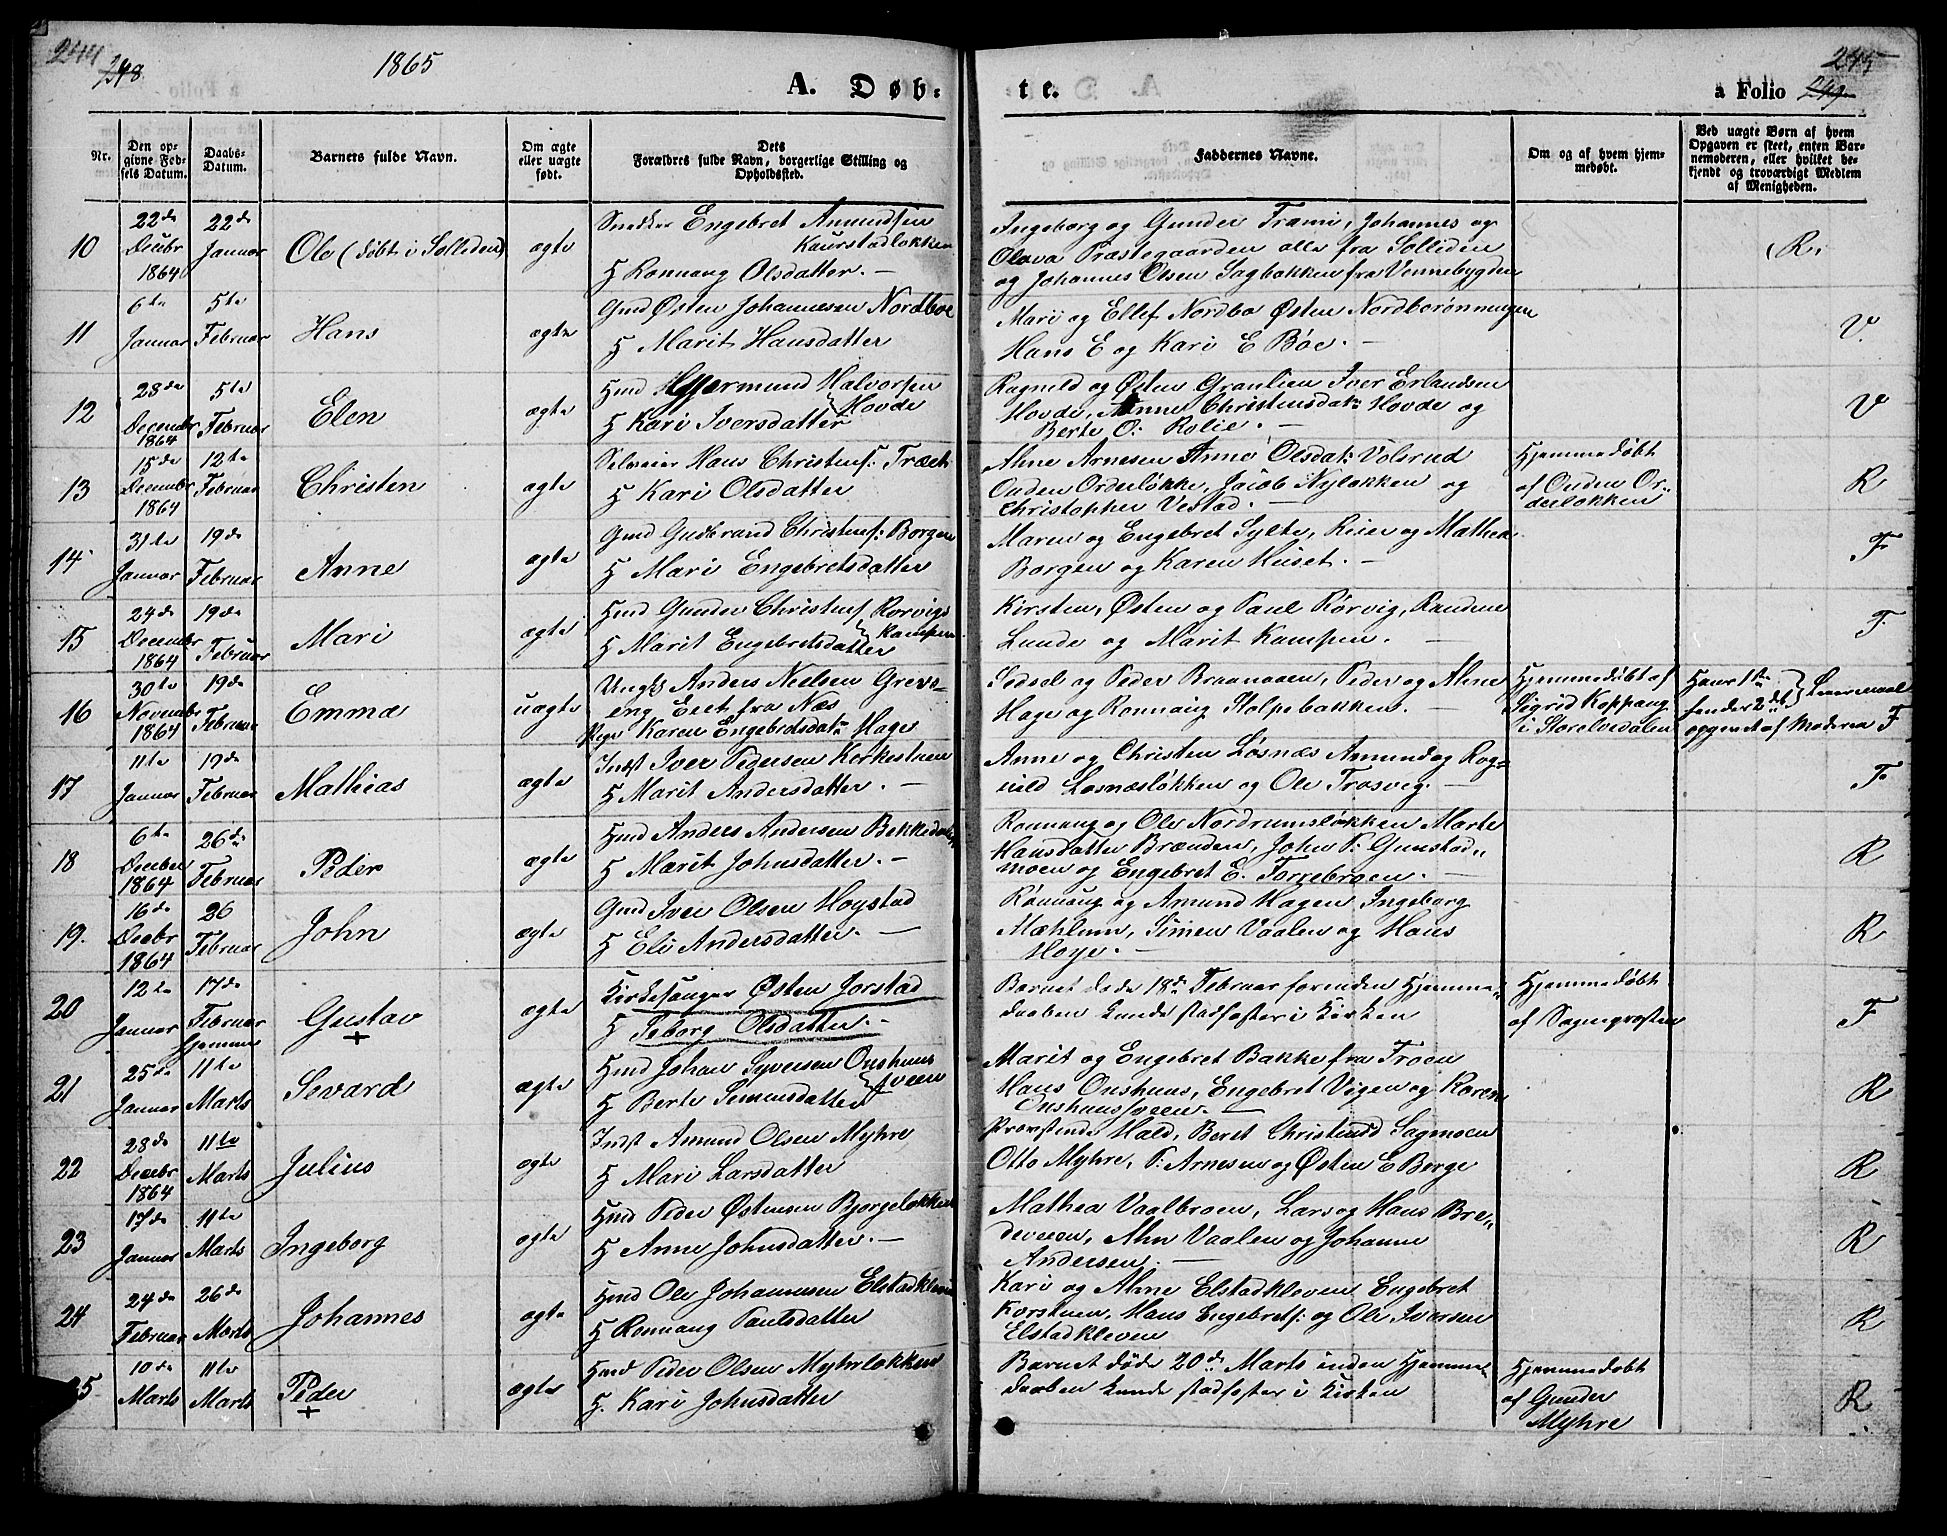 244
248
1865
A. Døb-
te.
245
a Folio 249
Nr.
Den op-
givne Fød-
sels Datum.
Daabs-
Datum.
Barnets fulde Navn.
Om ægte
eller uægte
født.
Dets
Forældres fulde Navn, borgerlige Stilling og
Opholdssted.
Faddernes Navne.
Om og af hvem hjem-
medøbt.
Ved uægte Børn af hvem
Opgaven er skeet, enten Bar-
nemoderen, eller hvilket be-
kjendt og troværdigt Medlem
af Menigheden.
10
22de
Decbr
1864
22de
Januar
Ole (døbt i Solliden)
ægte
Snekker Engebret Amundsen
Kaurstadløkken
H Rønnaug Olsdatter. —
Ingeborg og Gunder Trami, Johannes og
Olava Præstegaarden alle fra Solliden
og Johannes Olsen Sagbakken fra Vennebygden
R.
11
6te
Januar
5te
Februar
Hans
ægte
Gmd Østen Johannesen Nordboe
H Marit Hansdatter
Marit og Ellef Nordbø Østen Nordbørønningen
Hans E og Kari E Bøe. —
V.
12
28de
Decembr
1864
5te
Februar
Elen
ægte
Hmd Hjermund Halvorsen
Hovde
H Kari Iversdatter
Ragnild og Østen Granlien Iver Erlandsen
Hovde, Anne Christensdat: Hovde og
Berte O. Rolie. —
V
13
15de
Decembr
1864
12te
Februar
Christen
ægte
Selveier Hans Christens: Træet
H Kari Olsdatter
Ahne Arnesen Anne Olsdat: Volsrud
Ouden Orderløkke, Jacob Nyløkken og
Christopher Vestad. —
Hjemmedøbt
af Ouden Or-
derløkken
R
14
31te
Januar
19de
Februar
Anne
ægte
Gmd Gudbrand Christens: Borgen
H Mari Engebretsdatter
Maren og Engebret Sylte, Reier og Mathea
Borgen og Karen Huset. —
F
15
24de
Decembr
1864
19de
Februar
Mari
ægte
Hmd Gunder Christens: Rørvigs
kampen
H Marit Engebretsdatter
Kirsten, Østen og Paul Rørvig, Randine
Lunde og Marit Kampen. —
F.
16
30te
Novembr
1864
19de
Februar
Emma
uægte
Ungk: Anders Nielsen Grevs-
eng Eiet fra Næs
Pige Karen Engebretsdatr Hage
Sidsel og Peder Braanaaen, Peder og Ahne
Hage og Rønnaug Stolpebakken. —
Hjemmedøbt af
Sigrid Koppang
i Storelvedalen
Hans 1te
hendes 2det
Leiermaal
opgivet af Moderen F
17
11te
Januar
19de
Februar
Mathias
ægte
Indst Iver Pedersen Kirkestuen
H Marit Andersdatter. —
Anne og Christen Losnæs Amund og Rog-
nild Losnæsløkken og Ole Trosvig. —
F
18
6te
Decbr
1864
26de
Februar
Peder
ægte
Hmd Anders Andersen Bekkedalen
H Marit Johnsdatter. —
Rønnaug og Ole Nordrumsløkken Marte
Hansdatter Brænden, John P. Gunstad-
moen og Engebret E. Forrebroen. —
R
19.
16de
Decbr
1864
26
Februar
John
ægte
Gmd Iver Olsen Høystad
H Eli Andersdatter. —
Rønnaug og Amund Hagen Ingeborg
Mæhlum, Simen Vaalen og Hans
Høye. —
R
20
12te
Januar
17de
Februar
hjemme
Gustav
+
ægte
Kirkesanger Østen Jorstad
H Siborg Olsdatter. —
Barnet døde 18de Februar forinden Hjemme-
daaben kunde stadfæstes i Kirken
Hjemmedøbt
af Sognepræsten
F
21
25de
Januar
11te
Marts
Sevard
ægte
Hmd Johan Syversen Onshuus
sveen
H Berte Simensdatter
Marit og Engebret Bakke fra Troen
Hans Onshuus, Engebret Vigen og Karen
Onshuussveen. —
R
22
28de
Decbr
1864
11te
Marts
Julius
ægte
Indst Amund Olsen Myhre
H Mari Larsdatter
Provstinde Hald, Beret Christensd Sagmoen
Otto Myhre, P: Arnesen og Østen E Berge
R
23
17de
Januar
11te
Marts
Ingeborg
ægte
Hmd Peder Østensen Bjørgeløkken
H Anne Johnsdatter. —
Mathea Vaalbroen, Lars og Hans Bre-
deveien, Ahn Vaalen og Johanne
Andersen. —
R
24
24de
Februar
26de
Marts
Johannes
ægte
Hmd Ole Johannesen Elstadkleven
H Rønnaug Paulsdatter
Kari og Ahne Elstadkleven Engebret
Korstuen, Hans Engebrets: og Ole Iversen
Elstadkleven
R
25
10de
Marts
11te
Marts
Peder
+
ægte
Hmd Peder Olsen Myhrløkken
H. Kari Johnsdatter
Barnet døde 20de Marts inden Hjemme-
daaben kunde stadfæstes i Kirken
Hjemmedøbt
af Gunder
Myhre
R